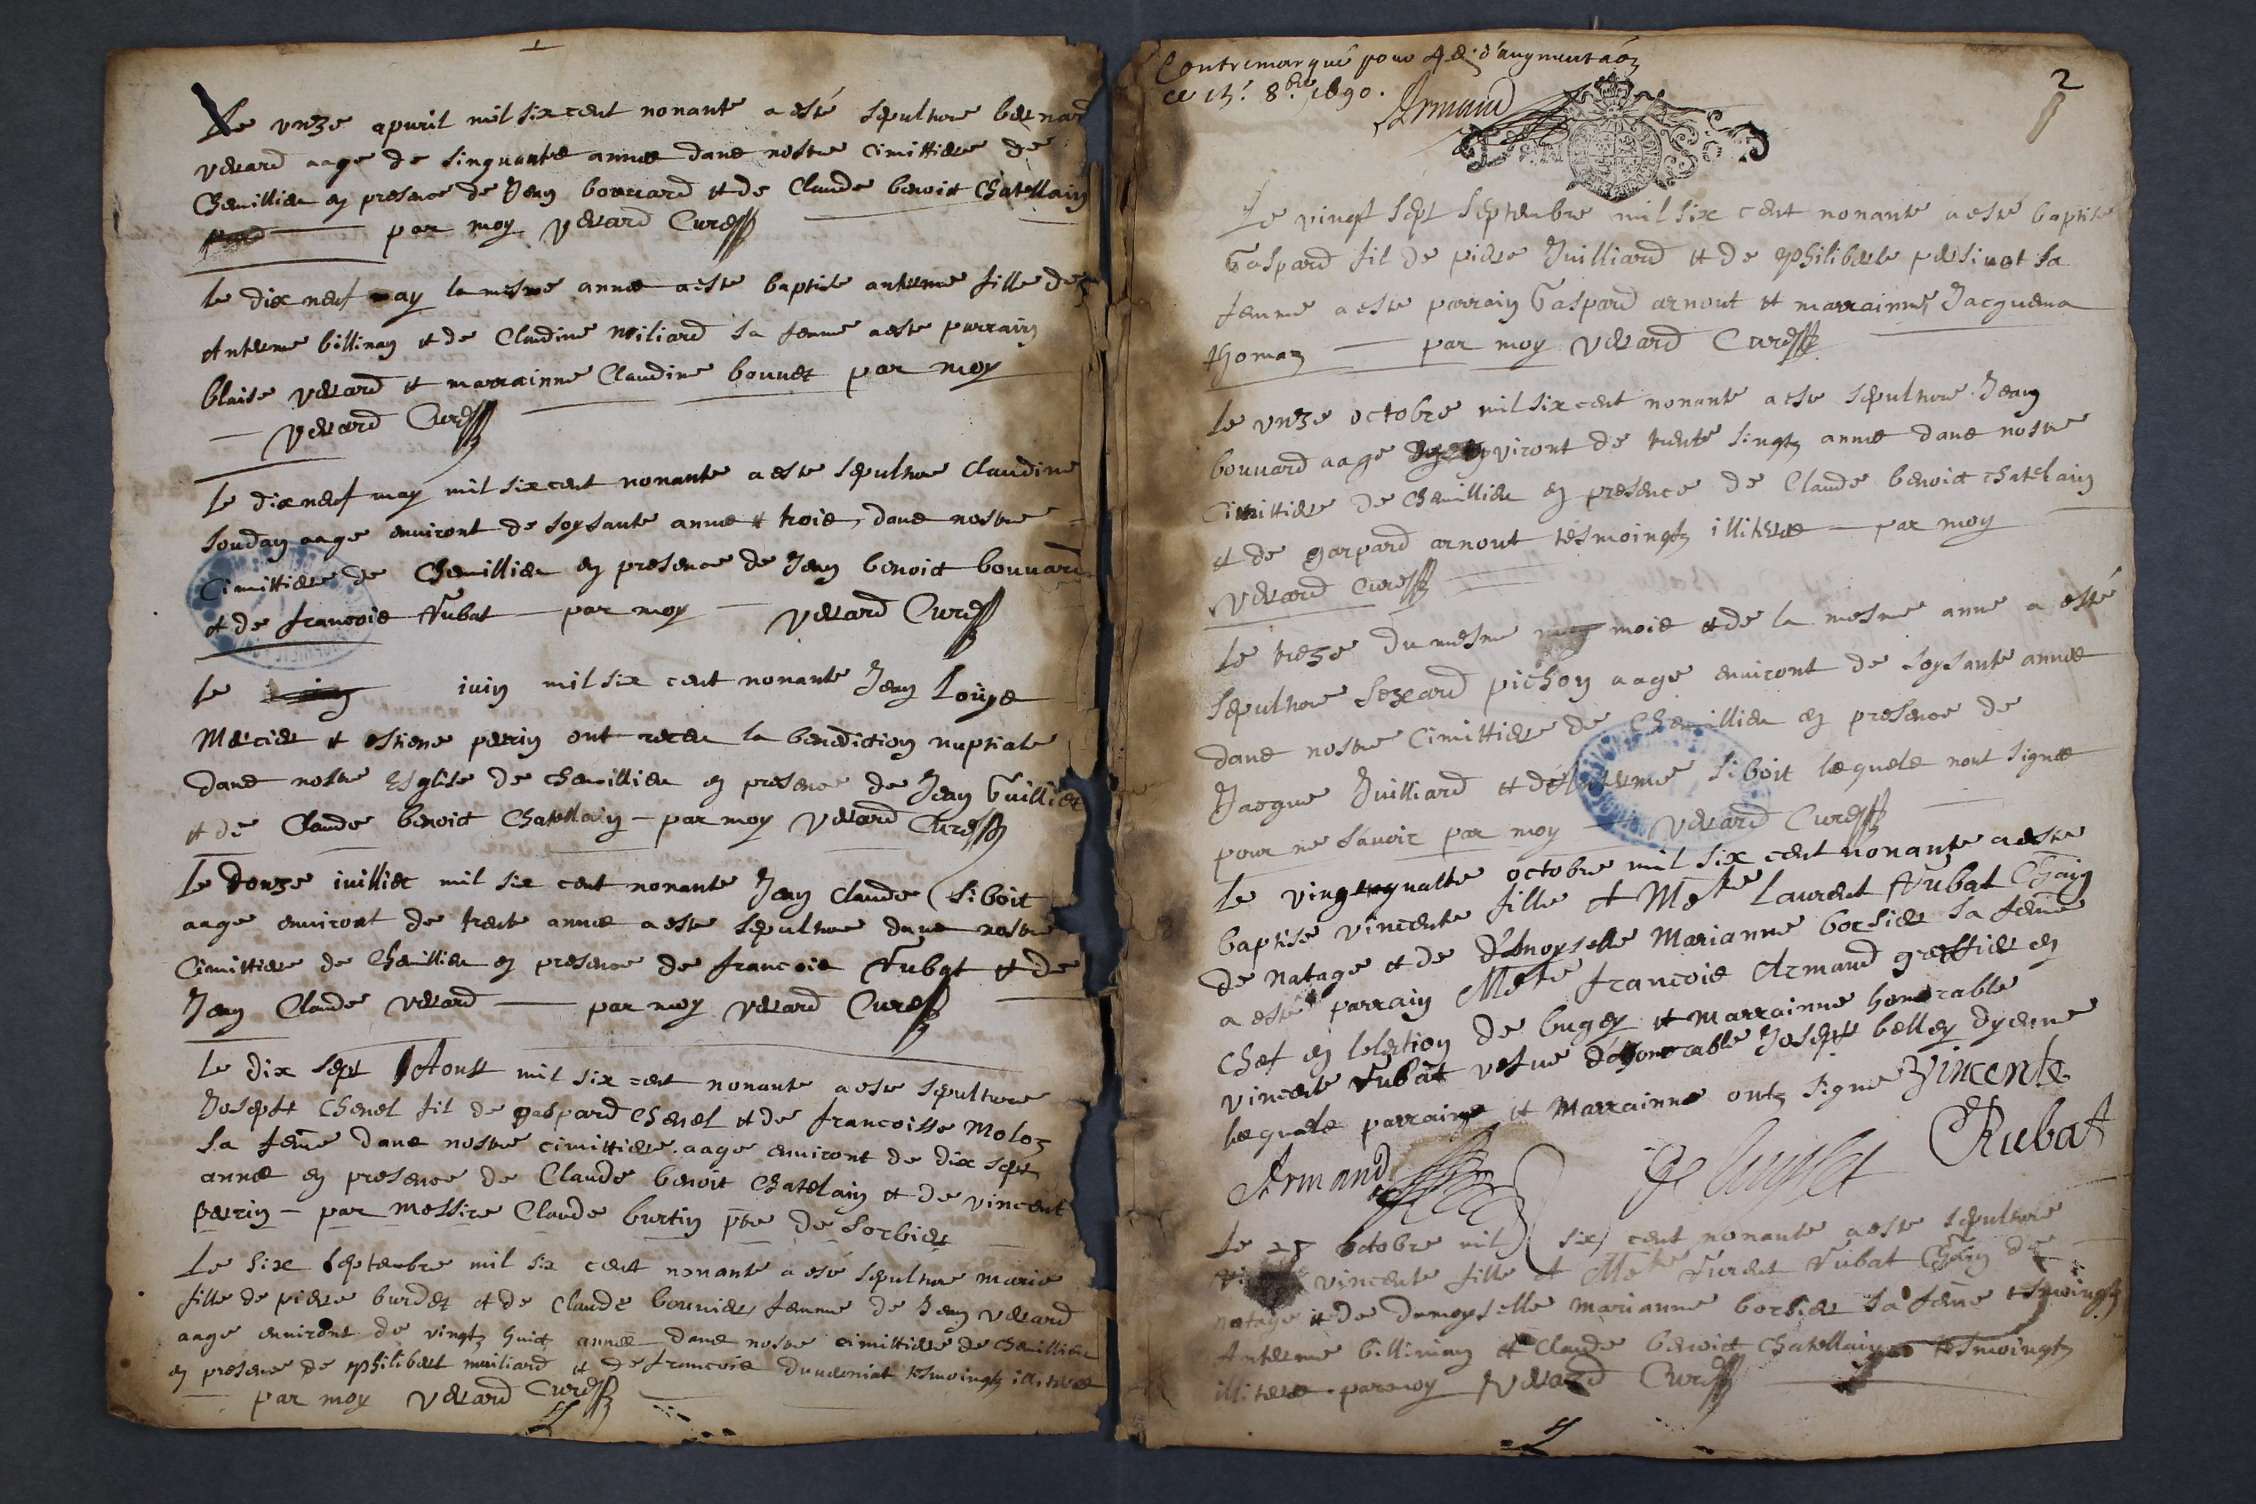 1
Le unze apuril mil six cent nonante a esté sepulture bernard
verard aage de sinquante annee dans nostre cimittiere de
Chemillieu en presence de Jean bouuard et de Claude benoict Chatellain
par moy Verard Cure
le dix neuf may la mesme annee a este baptisé anterme fille de
Anterme billiman et de Claudine miliard sa femme a este parrain
blaise verard et marrainne Claudine bouuet par moy
Verard Cure
le dix neuf may mil six cent nonante a este sepulture Claudine
soudan aage enuiront de soysante annee et trois dans nostre
Cimittiere de Chemillieu en presence de Jean benoict bouuard
et de francois Rubat par moy Verard Cure
le iuin mil six cent nonante Jean Louys
Mercier et estiene perrin ont receu la benediction nuptiale
dans nostre Esglise de chemillieu en presence de Jean Guilliet
et de Claude benoict Chatellain par moy Verard Cure
Le douze iuilliet mil six cent nonante Jean Claude Siboit
aage enuiront de trente annee a este sepulture dans nostre
Cimittiere de Chemillieu en presence de francois Rubat et de
Jean Claude Verard par moy Verard Cure
Le dix sept Aoust mil six cent nonante a este sepulture
Joseph Chenel fil de gaspard Chenel et de francoisse Moloz
sa feme dans nostre cimittiere aage enuiront de dix sept
annee en presence de Claude benoit Chatelain et de vincent
perrin par messire Claude burtin pbre de Sorbier
Le six septembre mil six cent nonante a esté sepulture marie
fille de piere burdet et de Claude bouuier femme de Jean Verard
aage enuiront de vingtz huict annee dans nostre cimittiere de Chemillieu
en presence de philibert muiliard et de francois tesmoingtz illiteree
par moy Verard Cure
2
Contremarqué pour d'augmentaon
ce 15. 8bre 1690.
Armand
Le vingt sept septembre mil six cent nonante a este baptisé
Gaspard fil de piere Juilliard et de philiberte persinet sa
femme a este parrain Gaspard arnout et marrainne Jaquema
thomaz par moy Verard Cure
Le unze octobre mil six cent nonante a este sepulture Jean
bouuard aage enuiront de trente singtz annee dans nostre
Cimittiere de Chemillieu en presence de Claude benoict chatelain
et de garpard arnout tesmoingtz illiteree par moy
Verard Cure
Le treze du mesme mois et de la mesme anne a esté
sepulture pichon aage enuiront de soysante annee
dans nostre Cimittiere de Chemillieu en presence de
Jacque Juilliard et d'Anterme Siboit lequele nont signee
pour ne sauoir par moy Verard Cure
Le vingt quatte octobre mil six cent nonante a este
baptise vincente fille de Mre Laurent Rubat Chain
de Natage et de d'amoyselle Marianne borsier sa feme
a este parrain Mre francois Armand greffier en
chef en lelection de bugey et marrainne honorable
vincente Rubat vefue d'honorable Joseph belley dyenne
lequele parrains et marrainne ontz signe Vincente
Rubat
Armand
Le 25 octobre mil six cent nonante a este sepulture
vincente fille de Mre Laurent Rubat Chain de
natage et de damoyselle marianne borsier sa feme tesmoingtz
Anterme billiman et Claude benoict Chatellain tesmoingtz
illiteree par moy Verard Cure